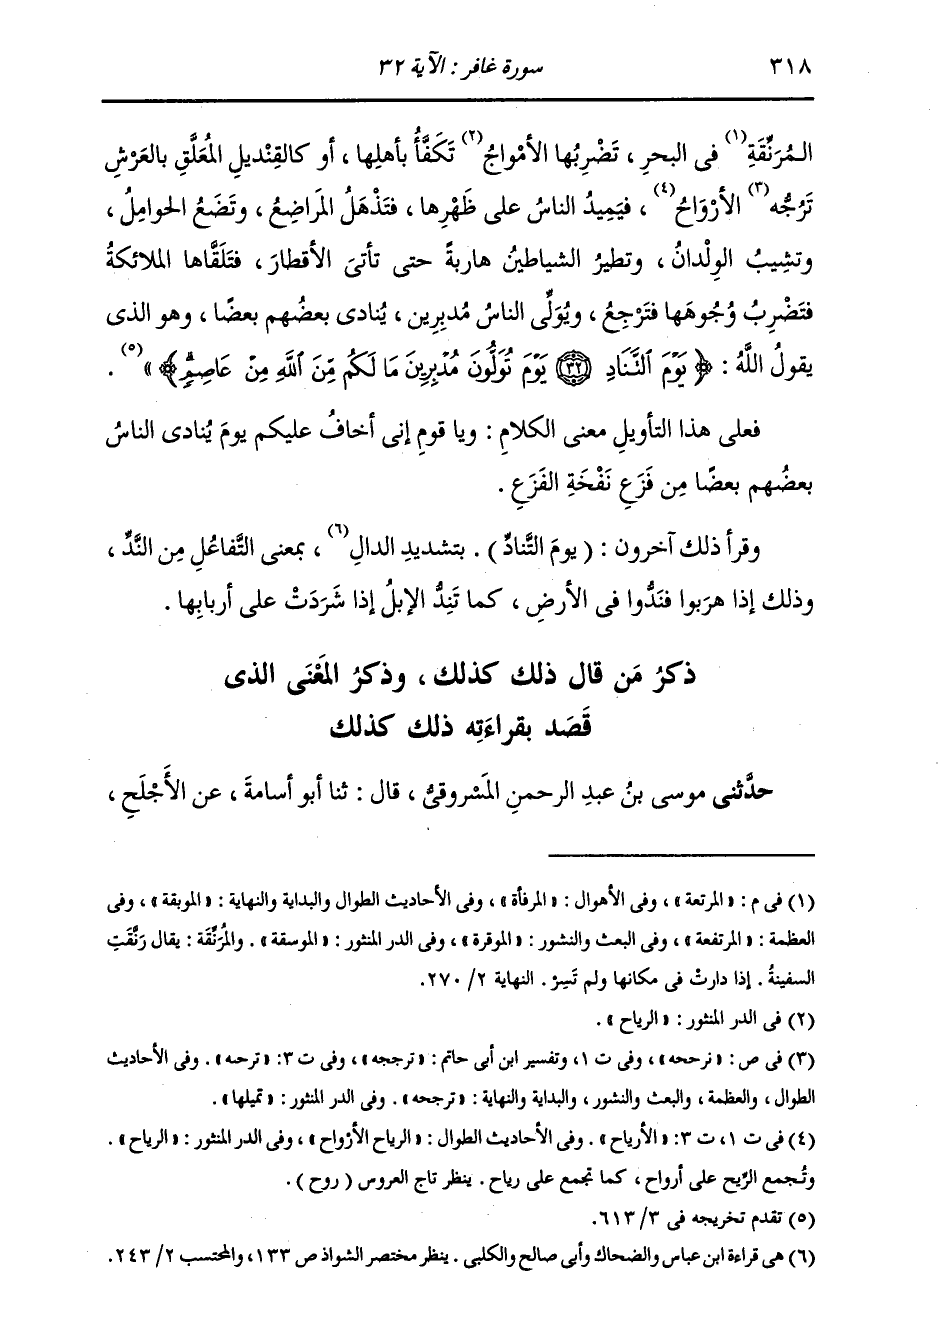 ٣١٨ سورة غافر : الآية ٣٢
المُرَنِّقَةِ(١) فى البحرِ ، تَضْرِبُها الأمْواجُ(٢) تَكَفَّأُ بأهلِها ، أو كالقِنْديلِ المُعَلَّقِ بالعَرْشِ
تَرُجُّه(٣) الأَرْوَاحُ(٤) ، فيَمِيدُ الناسُ على ظَهْرِها ، فتَذْهَلُ المَراضِعُ ، وتَضَعُ الحواملُ ،
وتشِيبُ الوِلْدانُ ، وتطيرُ الشياطينُ هاربةً حتى تأتىَ الأقطارَ ، فتَلَقَّاها الملائكةُ
فتَضْرِبُ وُجُوهَها فتَرْجِعُ ، ويُوَلِّى الناسُ مُدبِرِين ، يُنادى بعضُهم بعضًا ، وهو الذى
يقولُ اللَّهُ : ﴿ يَوْمَ ٱلنَّنَادِ ﴿٣٢﴾ يَوْمَ تُوَلُّونَ مُدْبِرِينَ مَا لَكُم مِّنَ ٱللَّهِ مِنْ عَاصِمٍ ﴾ »(٥) .
فعلى هذا التأويلِ معنى الكلامِ : ويا قومِ إنى أخافُ عليكم يومَ يُنادى الناسُ
بعضُهم بعضًا مِن فَزَعِ نَفْخَةِ الفَزَعِ .
وقرأ ذلك آخرون : ( يومَ التَّنادِّ ) . بتشديدِ الدالِ(٦) ، بمعنى التَّفاعُلِ مِن النَّدِّ ،
وذلك إذا هرَبوا فنَدُّوا فى الأرضِ ، كما تَنِدُّ الإبلُ إذا شَرَدَتْ على أربابِها .
ذكرُ مَن قال ذلك كذلك ، وذكرُ المَعْنَى الذى
قَصَد بقراءَتِه ذلك كذلك
حدَّثنى موسى بنُ عبدِ الرحمنِ المَسْروقىُّ ، قال : ثنا أبو أسامةَ ، عن الأَجْلَحِ ،
(١) فى م : « المرتعة » ، وفى الأهوال : « المرفأة » ، وفى الأحاديث الطوال والبداية والنهاية : « الموبقة » ، وفى
العظمة : « المرتفعة » ، وفى البعث والنشور : « الموقرة » ، وفى الدر المنثور : « الموسقة » . والمُرَنِّقَة : يقال رَنَّقَتِ
السفينةُ . إذا دارتْ فى مكانها ولم تَسِرْ . النهاية ٢/ ٢٧٠.
(٢) فى الدر المنثور : « الرياح » .
(٣) فى ص : « نرححه » ، وفى ت ١، وتفسير ابن أبى حاتم : « ترججه » ، وفى ت ٣: « ترحه » . وفى الأحاديث
الطوال ، والعظمة ، والبعث والنشور ، والبداية والنهاية : « ترجحه » . وفى الدر المنثور : « تميلها » .
(٤) فى ت ١، ت ٣: « الأرياح » . وفى الأحاديث الطوال : « الرياح الأرواح » ، وفى الدر المنثور : « الرياح » .
وتُجمع الرِّيح على أرواح ، كما تجمع على رياح . ينظر تاج العروس ( روح ) .
(٥) تقدم تخريجه فى ٣/ ٦١٣.
(٦) هى قراءة ابن عباس والضحاك وأبى صالح والكلبى . ينظر مختصر الشواذ ص ١٣٣، والمحتسب ٢/ ٢٤٣.